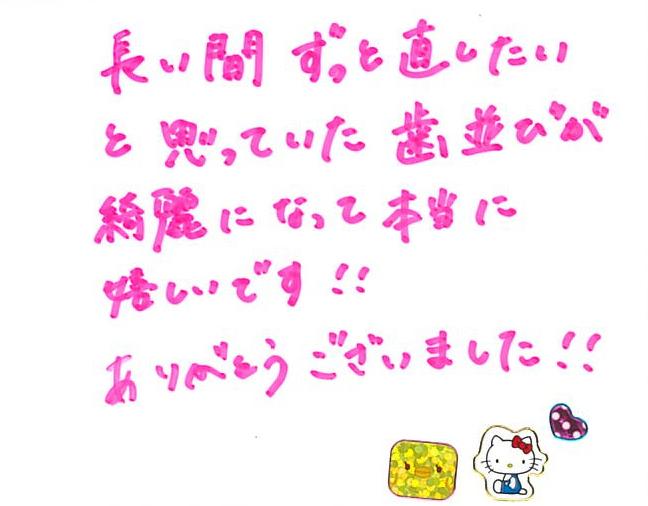 長い間 ずっと直したい
と思っていた歯並びが
綺麗になって本当に
嬉しいです!!
ありがとうございました!!